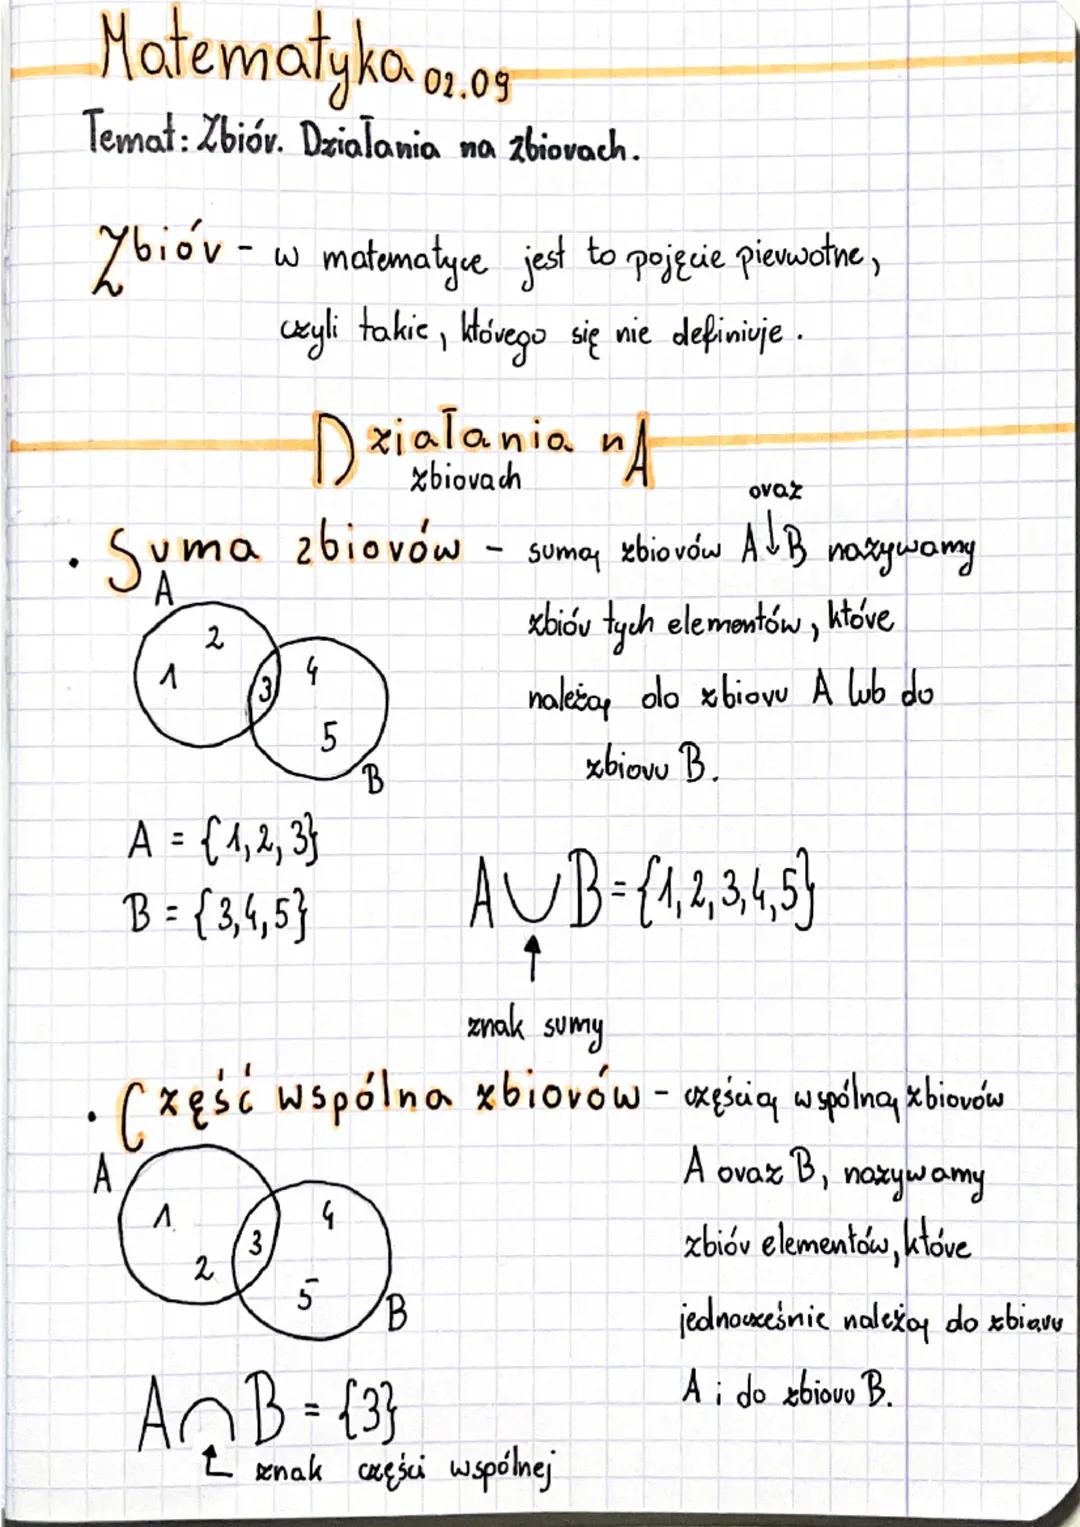 Matematyka 02.09
Temat: Zbiór. Działania na zbiorach.
Zbiór - w matematyce jest to pojęcie pierwotne,
czyli takie, którego się nie definiuje.
Działania nA
zbiorach
oraz
• Suma zbiorów - sumą zbiorów A↓B nazywamy
zbiór tych elementów, które
należą do zbioru A lub do
zbioru B.
A
2
1 3 4
5
B
A = {1,2,3}
B = {3,4,5}
A∪B={1,2,3,4,5}
↑
znak sumy
• Część wspólna zbiorów - częścią wspólną zbiorów
A oraz B, nazywamy
zbiór elementów, które
jednocześnie należą do zbioru
A i do zbioru B.
A
1 4
2 3
5
B
A∩B = {3}
znak części wspólnej